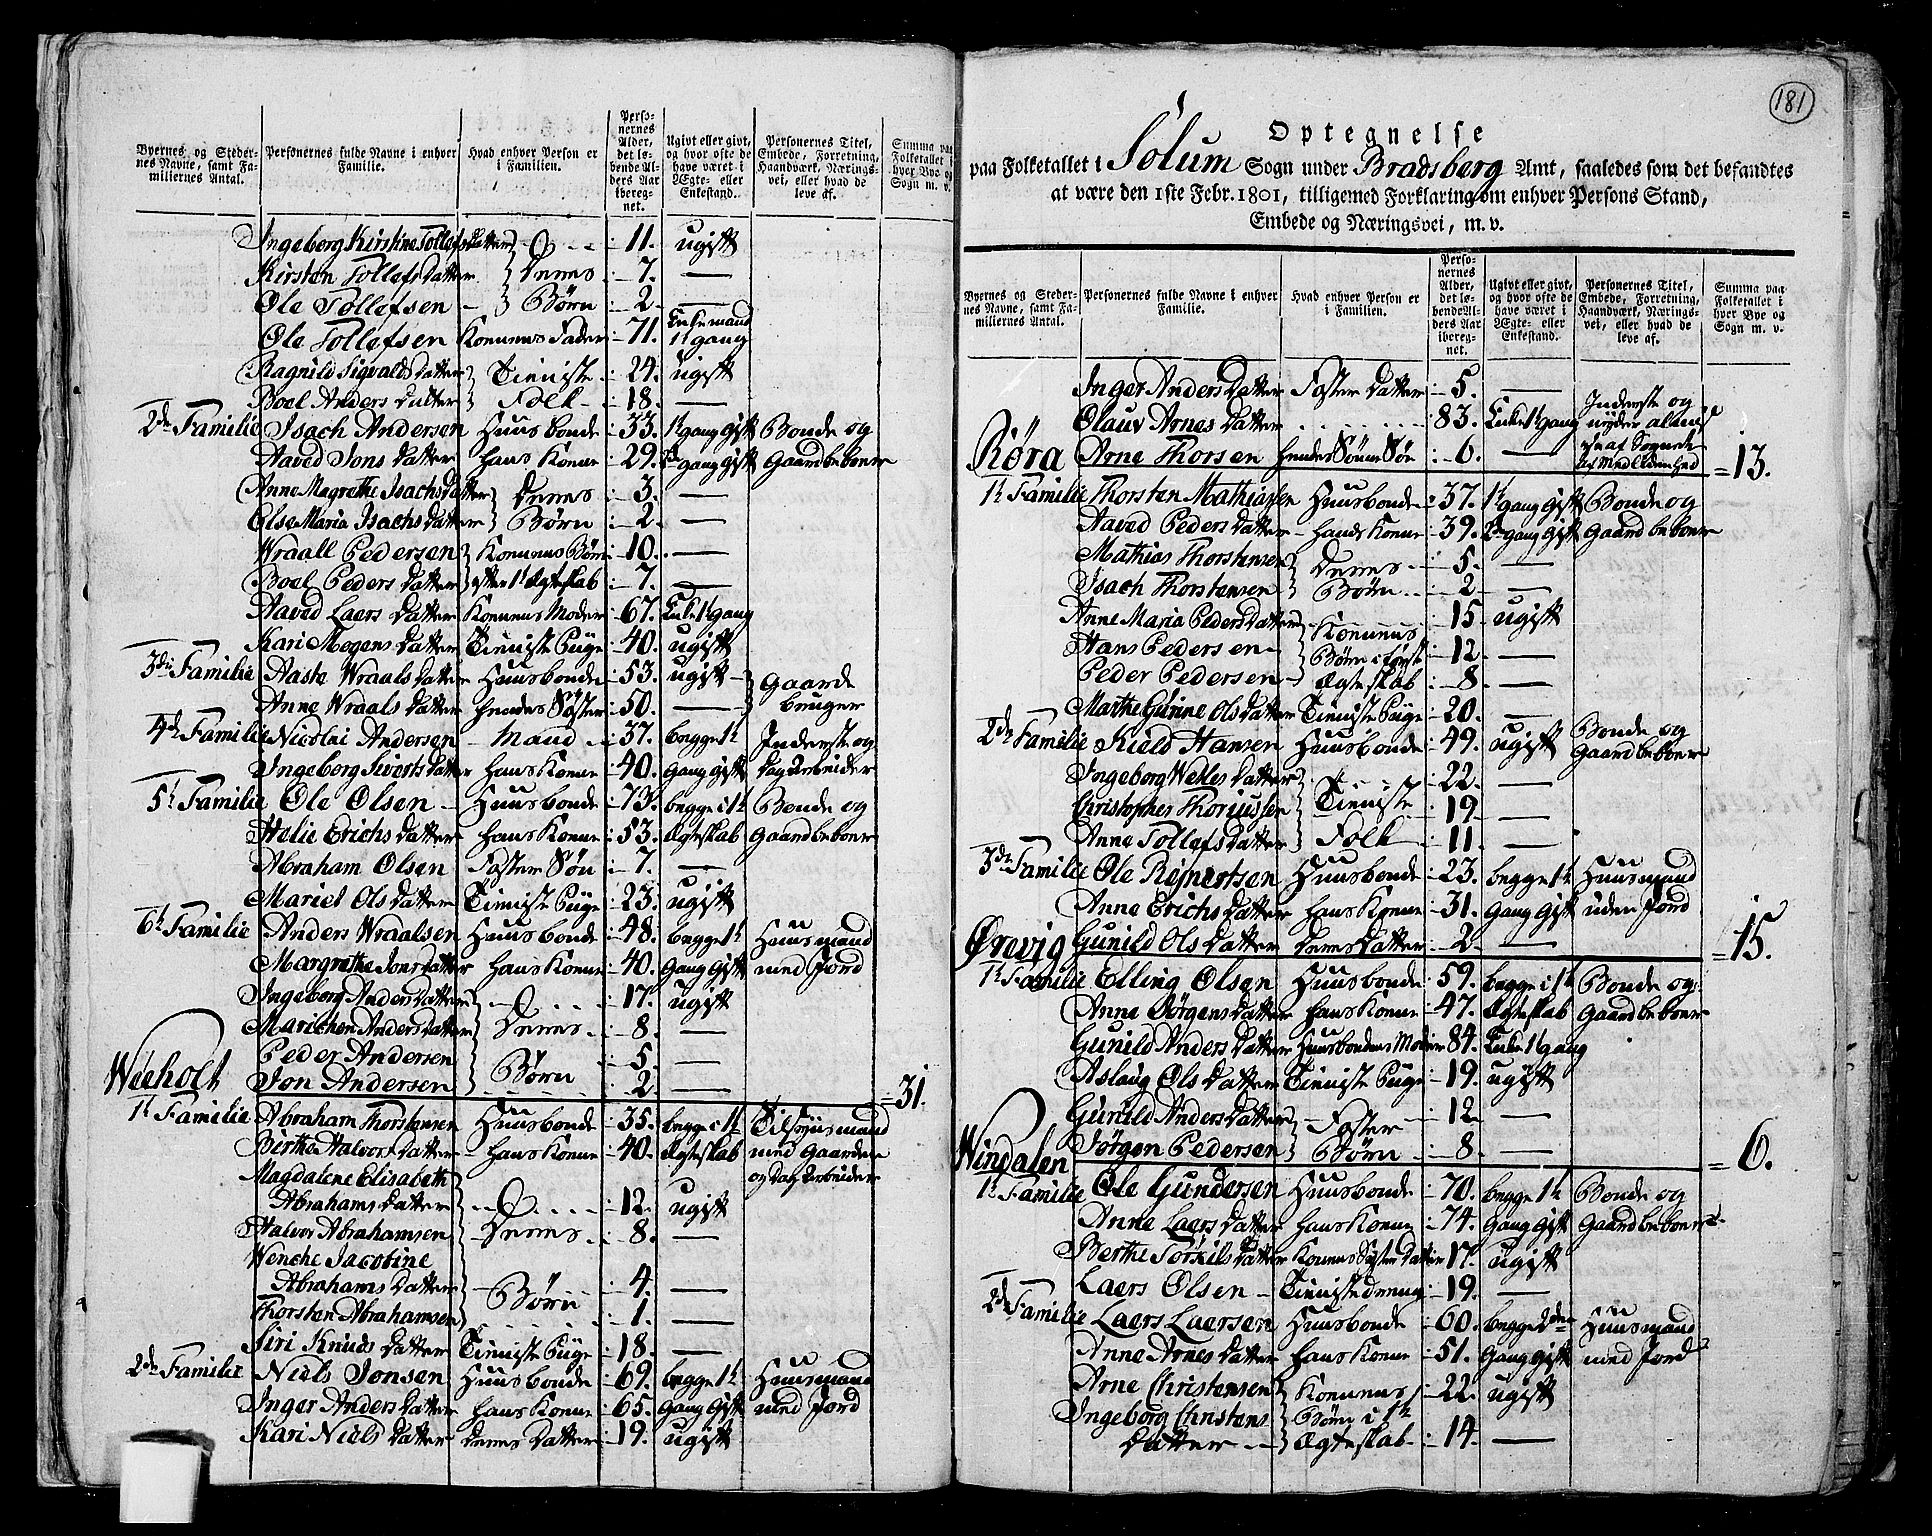 Byernes og Steder-
nes Navne, samt Fa-
miliernes Antal.
Personernes fulde Navne i enhver
Familie.
Hvad enhver Person er
i Familien.
Perso-
nernes
Alder,
det lø-
bende Al-
ders Aar
iberegnet.
Ugivt eller givt,
og hvor ofte de
have været i
Ægte- eller
Enkestand.
Personernes Titel,
Embede, Forretning,
Haandværk, Nærings-
vei, eller hvad de
leve af.
Summa paa
Folketallet i
hver Bye og
Sogn m. v.
Ingeborg Kirstine Tollefs Datter 11. ugift
Kirsten Tollefs Datter Deres 7. —
Ole Tollefsen Børn 2 —
Ole Tollefsen Konnens Fader 71. Enkemand 1t gang
Ragnild Sigvalds Datter Tieniste 24. ugift
Boel Anders Datter Folk 18. —
2de Familie Isach Andersen Huusbonde 33. 1t gang gift Bonde og
Aaved Jons Datter hans Konne 29. 2den gang gift Gaardbeboere
Anne Magrethe Isachs Datter Deres 3. —
Else Maria Isachs Datter Børn 2 —
Wraall Pedersen Konnens Børn 10. —
Boel Peders Datter efter 1t Ægteskab 7. —
Aaved Laers Datter Konnens Moder 67. Enke 1t gang
Kari Mogens Datter Tieniste Pige 40. ugift
3die Familie Aaste Wraals Datter Huusbonde 53. ugift Gaard
Anne Wraals Datter hendes Søster 50. — bruger
4de Familie Nicolai Andersen Mand 37. begge 1t Inderste og
Ingeborg Siverts Datter hans Konne 40. Gang Gift dag Arbeider
5t Familie Ole Olsen Huusbonde 73. begge i 1t Bonde og
Helie Erichs Datter hans Konne 53. Ægteskab Gaardbeboere
Abraham Olsen Foster Søn 7. —
Mariet Ols Datter Tieniste Pige 23. ugift
6t Familie Anders Wraalsen Huusbonde 48. begge 1t Huusmand
Margrethe Jons Datter hans Konne 40. Gang Gift med Jord
Ingeborg Anders Datter 17. ugift
Marichen Anders Datter Deres 8. —
Peder Andersen 5. —
Weeholt Jon Andersen Børn 2 — 31.
1t Familie Abraham Thorstensen Huusbonde 35. begge i 1t Tilsynsmand
Birthe Halvors Datter hans Konne 40. Ægteskab med Gaarden
Magdalene Elisabeth og Dag Arbeider
Abrahams Datter 12. ugift
Halvor Abrahamsen Deres 8. —
Wenche Jacobine
Abrahams Datter 4. —
Thorsten Abrahamsen Børn 1. —
Siri Knuds Datter Tieniste Pige 18. —
2de Familie Niels Jonsen Huusbonde 69. begge 1t Huusmand
Inger Anders Datter hans Konne 65. Gang Gift med Jord
Kari Niels Datter deres Datter 19. ugift
181
Optegnelse
paa Folketallet i Solum Sogn under Bradsberg Amt, saaledes som det befandtes
at være den 1ste Febr. 1801, tilligemed Forklaring om enhver Persons Stand,
Embede og Næringsvei, m. v.
Byernes og Steder-
nes Navne, samt Fa-
miliernes Antal.
Personernes fulde Navne i enhver
Familie.
Hvad enhver Person er
i Familien.
Perso-
nernes
Alder,
det lø-
bende Al-
ders Aar
iberegnet.
Ugivt eller givt,
og hvor ofte de
have været i
Ægte- eller
Enkestand.
Personernes Titel,
Embede, Forretning,
Haandværk, Nærings-
vei, eller hvad de
leve af.
Summa paa
Folketallet i
hver Bye og
Sogn m. v.
Inger Anders Datter Foster Datter 5. —
Olauv Arnes Datter 83. Enke 1t gang Inderste og nyder almisse af Sognets
Røra Arne Thorsen hendes Sønne Søn 6. — 13.
1t Familie Thorsten Mathiassen Huusbonde 37. 1t gang gift Bonde og
Aaved Peders Datter hans Konne 39. 2den gang gift Gaardbeboere
Mathias Thorstensen Deres 5. —
Isach Thorstensen Børn 2 —
Anne Maria Peders Datter 15 ugift
Hans Pedersen Konnens Børn i første 12 —
Peder Pedersen Ægteskab 8 —
Marthe Gurine Ols Datter Tieniste Pige 20. —
2de Familie Kield Hansen Huusbonde 49. ugift Bonde og Gaardbeboere
Ingeborg Wetles Datter 22. —
Christopher Thoriussen Tieniste 19 —
Anne Tollefs Datter Folk 11. —
3de Familie Ole Reinertsen Huusbonde 23. begge 1t Huusmand
Anne Erichs Datter hans Konne 31. Gang Gift uden Jord
Ørevig Gunild Ols Datter deres Datter 2 — 15.
1t Familie Elling Olsen Huusbonde 59. begge i 1t Bonde og
Anne Jørgens Datter hans Konne 47. Ægteskab Gaardbeboere
Gunild Anders Datter Huusbondens Moder 84. Enke 1t gang
Aslaug Ols Datter Tieniste Pige 19. ugift
Gunild Anders Datter Foster 12 —
Windalen Jørgen Pedersen Børn 8. — 6.
1t Familie Ole Gundersen Huusbonde 70. begge 1t Bonde og
Anne Laers Datter hans Konne 74. Gang Gift Gaardbeboere
Berthe Torkils Datter Konnens Søster Datter 17. ugift
Laers Olsen Tienistedreng 19. —
2de Familie Laers Laersen Huusbonde 60. begge 2den Huusmand
Anne Arnes Datter hans Konne 51. Gang Gift med Jord
Arne Christensen Konnens 22. ugift
Ingeborg Christens Børn i 1t
Datter Ægteskab 14. —